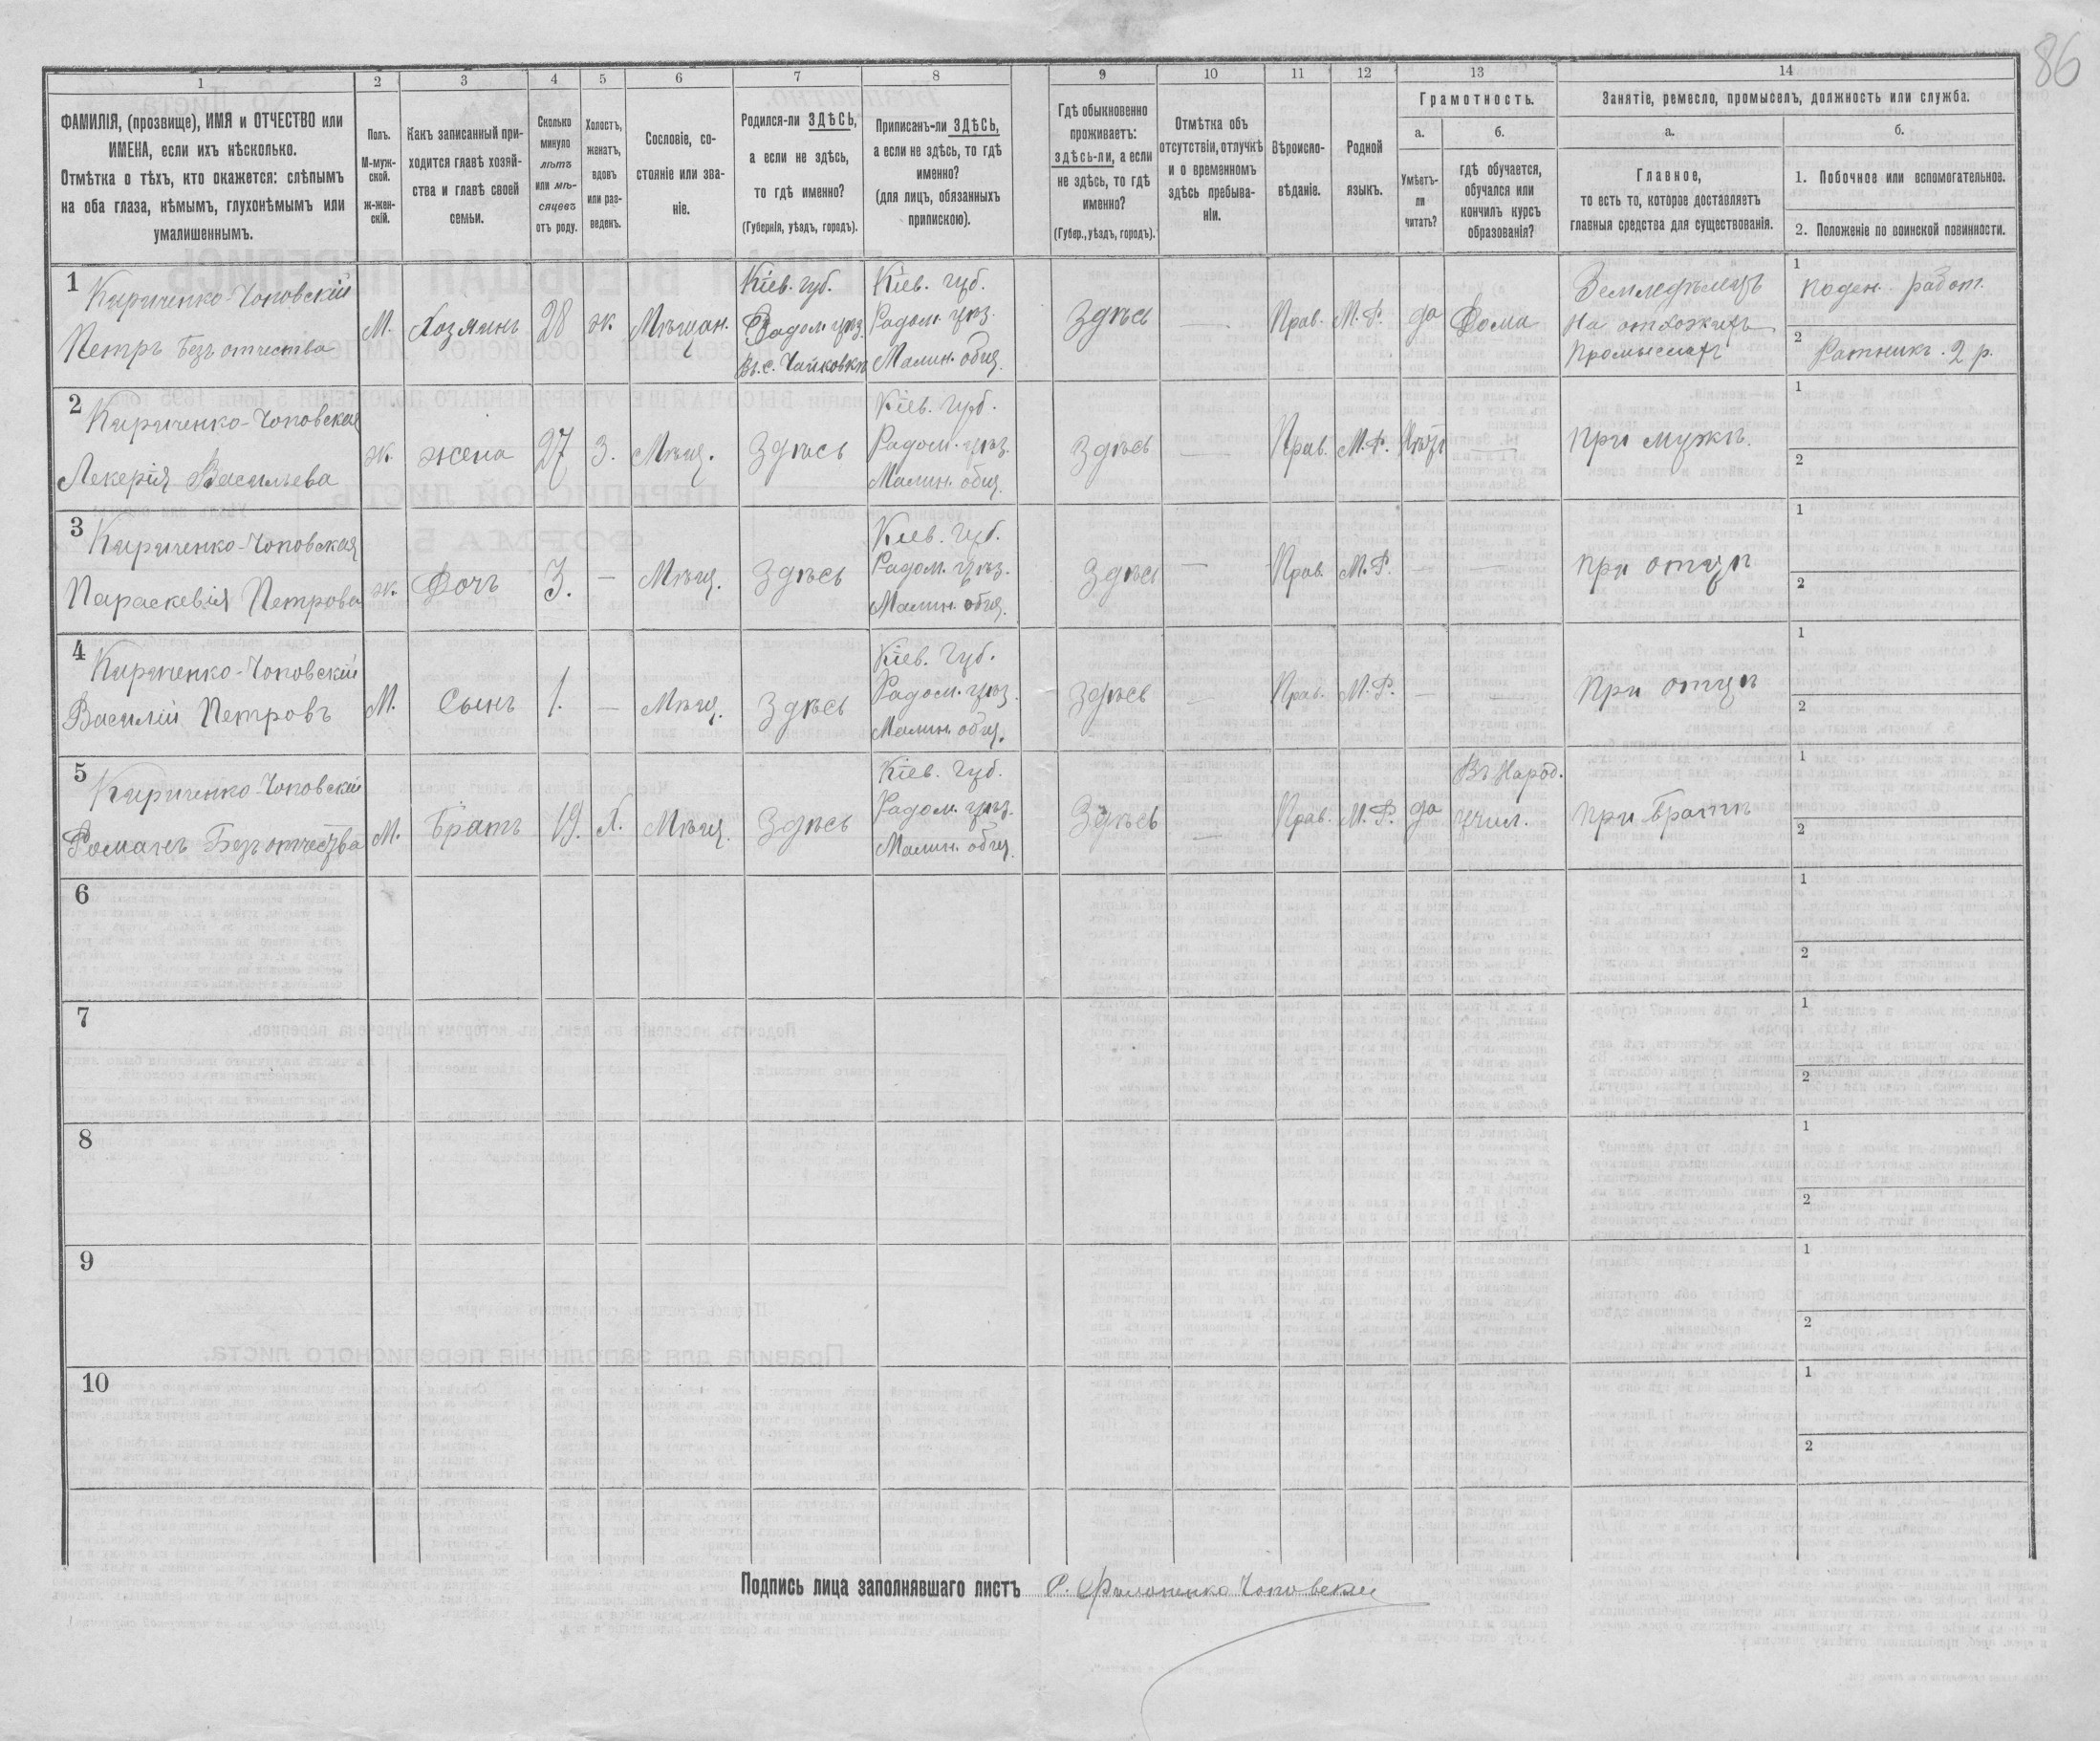 86
1
2
3
4
5
6
7
8
9
10
11
12
13
14
ФАМИЛІЯ, (прозвище), ИМЯ и ОТЧЕСТВО или
ИМЕНА, если ихъ нѣсколько.
Отмѣтка о тѣхъ, кто окажется: слѣпымъ
на оба глаза, нѣмымъ, глухонѣмымъ или
умалишеннымъ.
Полъ.
М-муж-
ской.
ж-жен-
скій.
Какъ записанный при-
ходится главѣ хозяй-
ства и главѣ своей
семьи.
Сколько
минуло
лѣтъ
или мѣ-
сяцевъ
отъ роду.
Холостъ,
женатъ,
вдовъ
или раз-
веденъ.
Сословіе, со-
стояніе или зва-
ніе.
Родился-ли ЗДѢСЬ,
а если не здѣсь,
то гдѣ именно?
(Губернія, уѣздъ, городъ).
Приписанъ-ли ЗДѢСЬ,
а если не здѣсь, то гдѣ
именно?
(для лицъ, обязанныхъ
припискою).
Гдѣ обыкновенно
проживаетъ:
здѣсь-ли, а если
не здѣсь, то гдѣ
именно?
(Губер., уѣздъ, городъ).
Отмѣтка объ
отсутствіи, отлучкѣ
и о временномъ
здѣсь пребыва-
ніи.
Вѣроиспо-
вѣданіе.
Родной
языкъ.
Грамотность.
а.
Умѣетъ-
ли
читать?
б.
гдѣ обучается,
обучался или
кончилъ курсъ
образованія?
Занятіе, ремесло, промыселъ, должность или служба.
а.
Главное,
то есть то, которое доставляетъ
главныя средства для существованія.
б.
1. Побочное или вспомогательное.
2. Положеніе по воинской повинности.
1
Кириченко-Чоповскій
Петръ Безъ отчества
М.
Хозяинъ
28
ж.
Мѣщан.
Кіев. губ.
Радом. уѣз.
Въ с. Чайковкѣ
Кіев. губ.
Радом. уѣз.
Малин. общ.
Здѣсь
—
Прав.
М. Р.
да
Дома
Земледѣлецъ
На отхожихъ
Промыслахъ
1
Поден. работ.
2
Ратникъ. 2 р.
2
Кириченко-Чоповская
Лекерія Васильева
ж.
жена
27
З.
Мѣщ.
Здѣсь
Кіев. Губ.
Радом. уѣз.
Малин. общ.
Здѣсь
—
Прав.
М. Р.
Нѣтъ
—
При мужѣ.
1
2
3
Кириченко-Чоповская
Параскевія Петрова
ж.
Дочь
3.
—
Мѣщ.
Здѣсь
Кіев. Губ.
Радом. уѣз.
Малин. общ.
Здѣсь
—
Прав.
М. Р.
—
—
при отцѣ
1
2
4
Кириченко-Чоповскій
Василій Петровъ
М.
Сынъ
1.
—
Мѣщ.
Здѣсь
Кіев. Губ.
Радом. уѣз.
Малин. общ.
Здѣсь
—
Прав.
М. Р.
—
—
При отцѣ
1
2
5
Кириченко-Чоповскій
Романъ Безъ отчества
М.
Братъ
19.
Х.
Мѣщ.
Здѣсь
Кіев. Губ.
Радом. уѣз.
Малин. общ.
Здѣсь
—
Прав.
М. Р.
да
Въ Народ.
учил.
при братѣ
1
2
6
1
2
7
1
2
8
1
2
9
1
2
10
1
2
Подпись лица заполнявшаго листъ Чоповскій